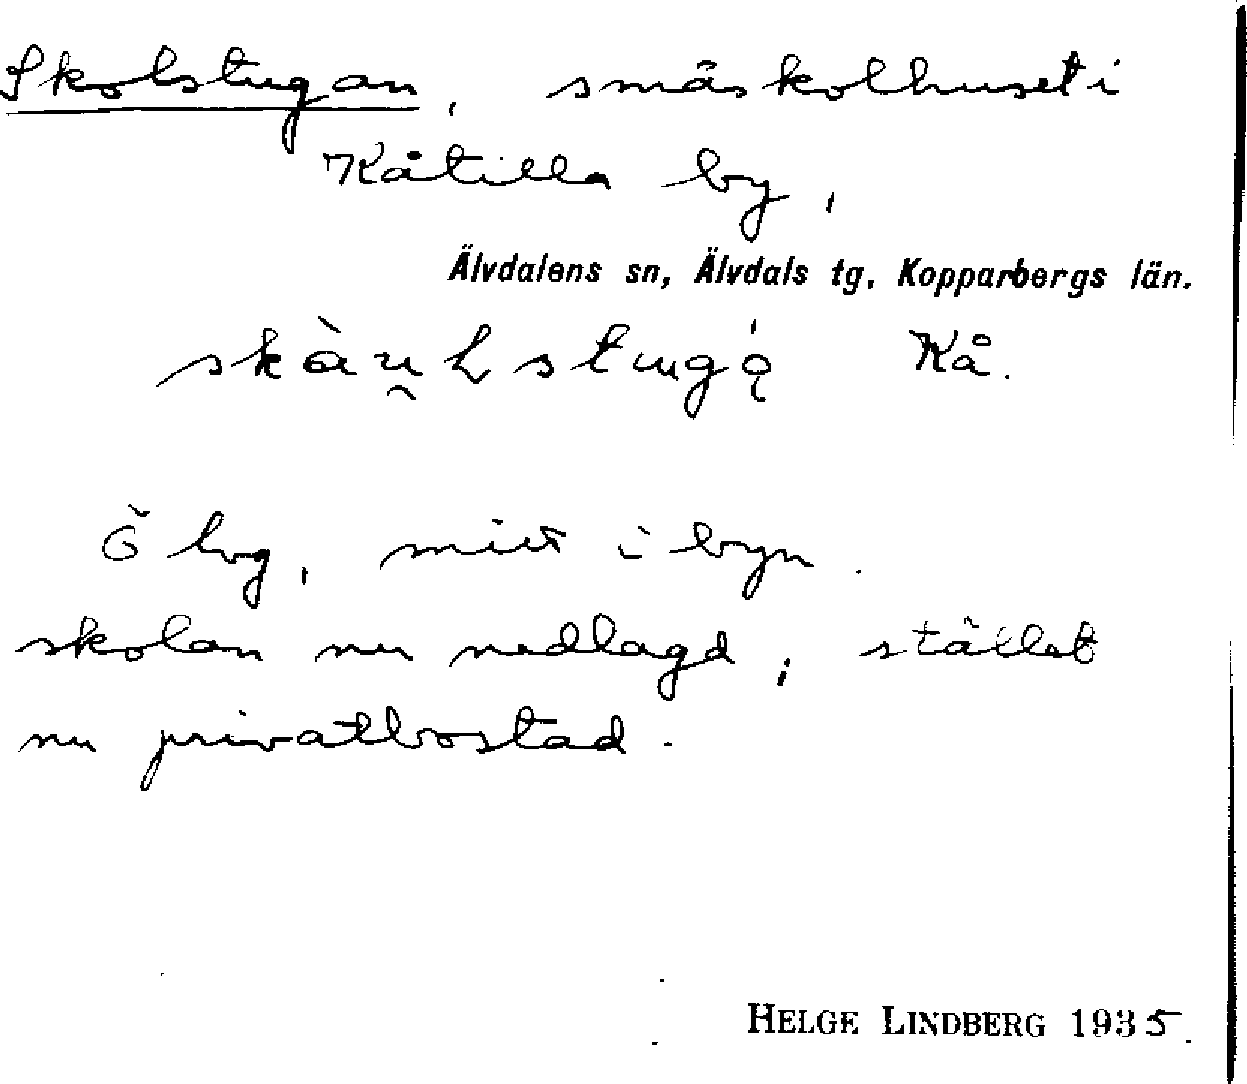 Skolstugan, småskolhuset i
Kåtilla by,
Älvdalens sn, Älvdals tg, Kopparbergs län.
Kå.
Ö bg, mitt i byn.
skolan nu nedlagd, stället
nu privatbostad.
HELGE LINDBERG 1935.